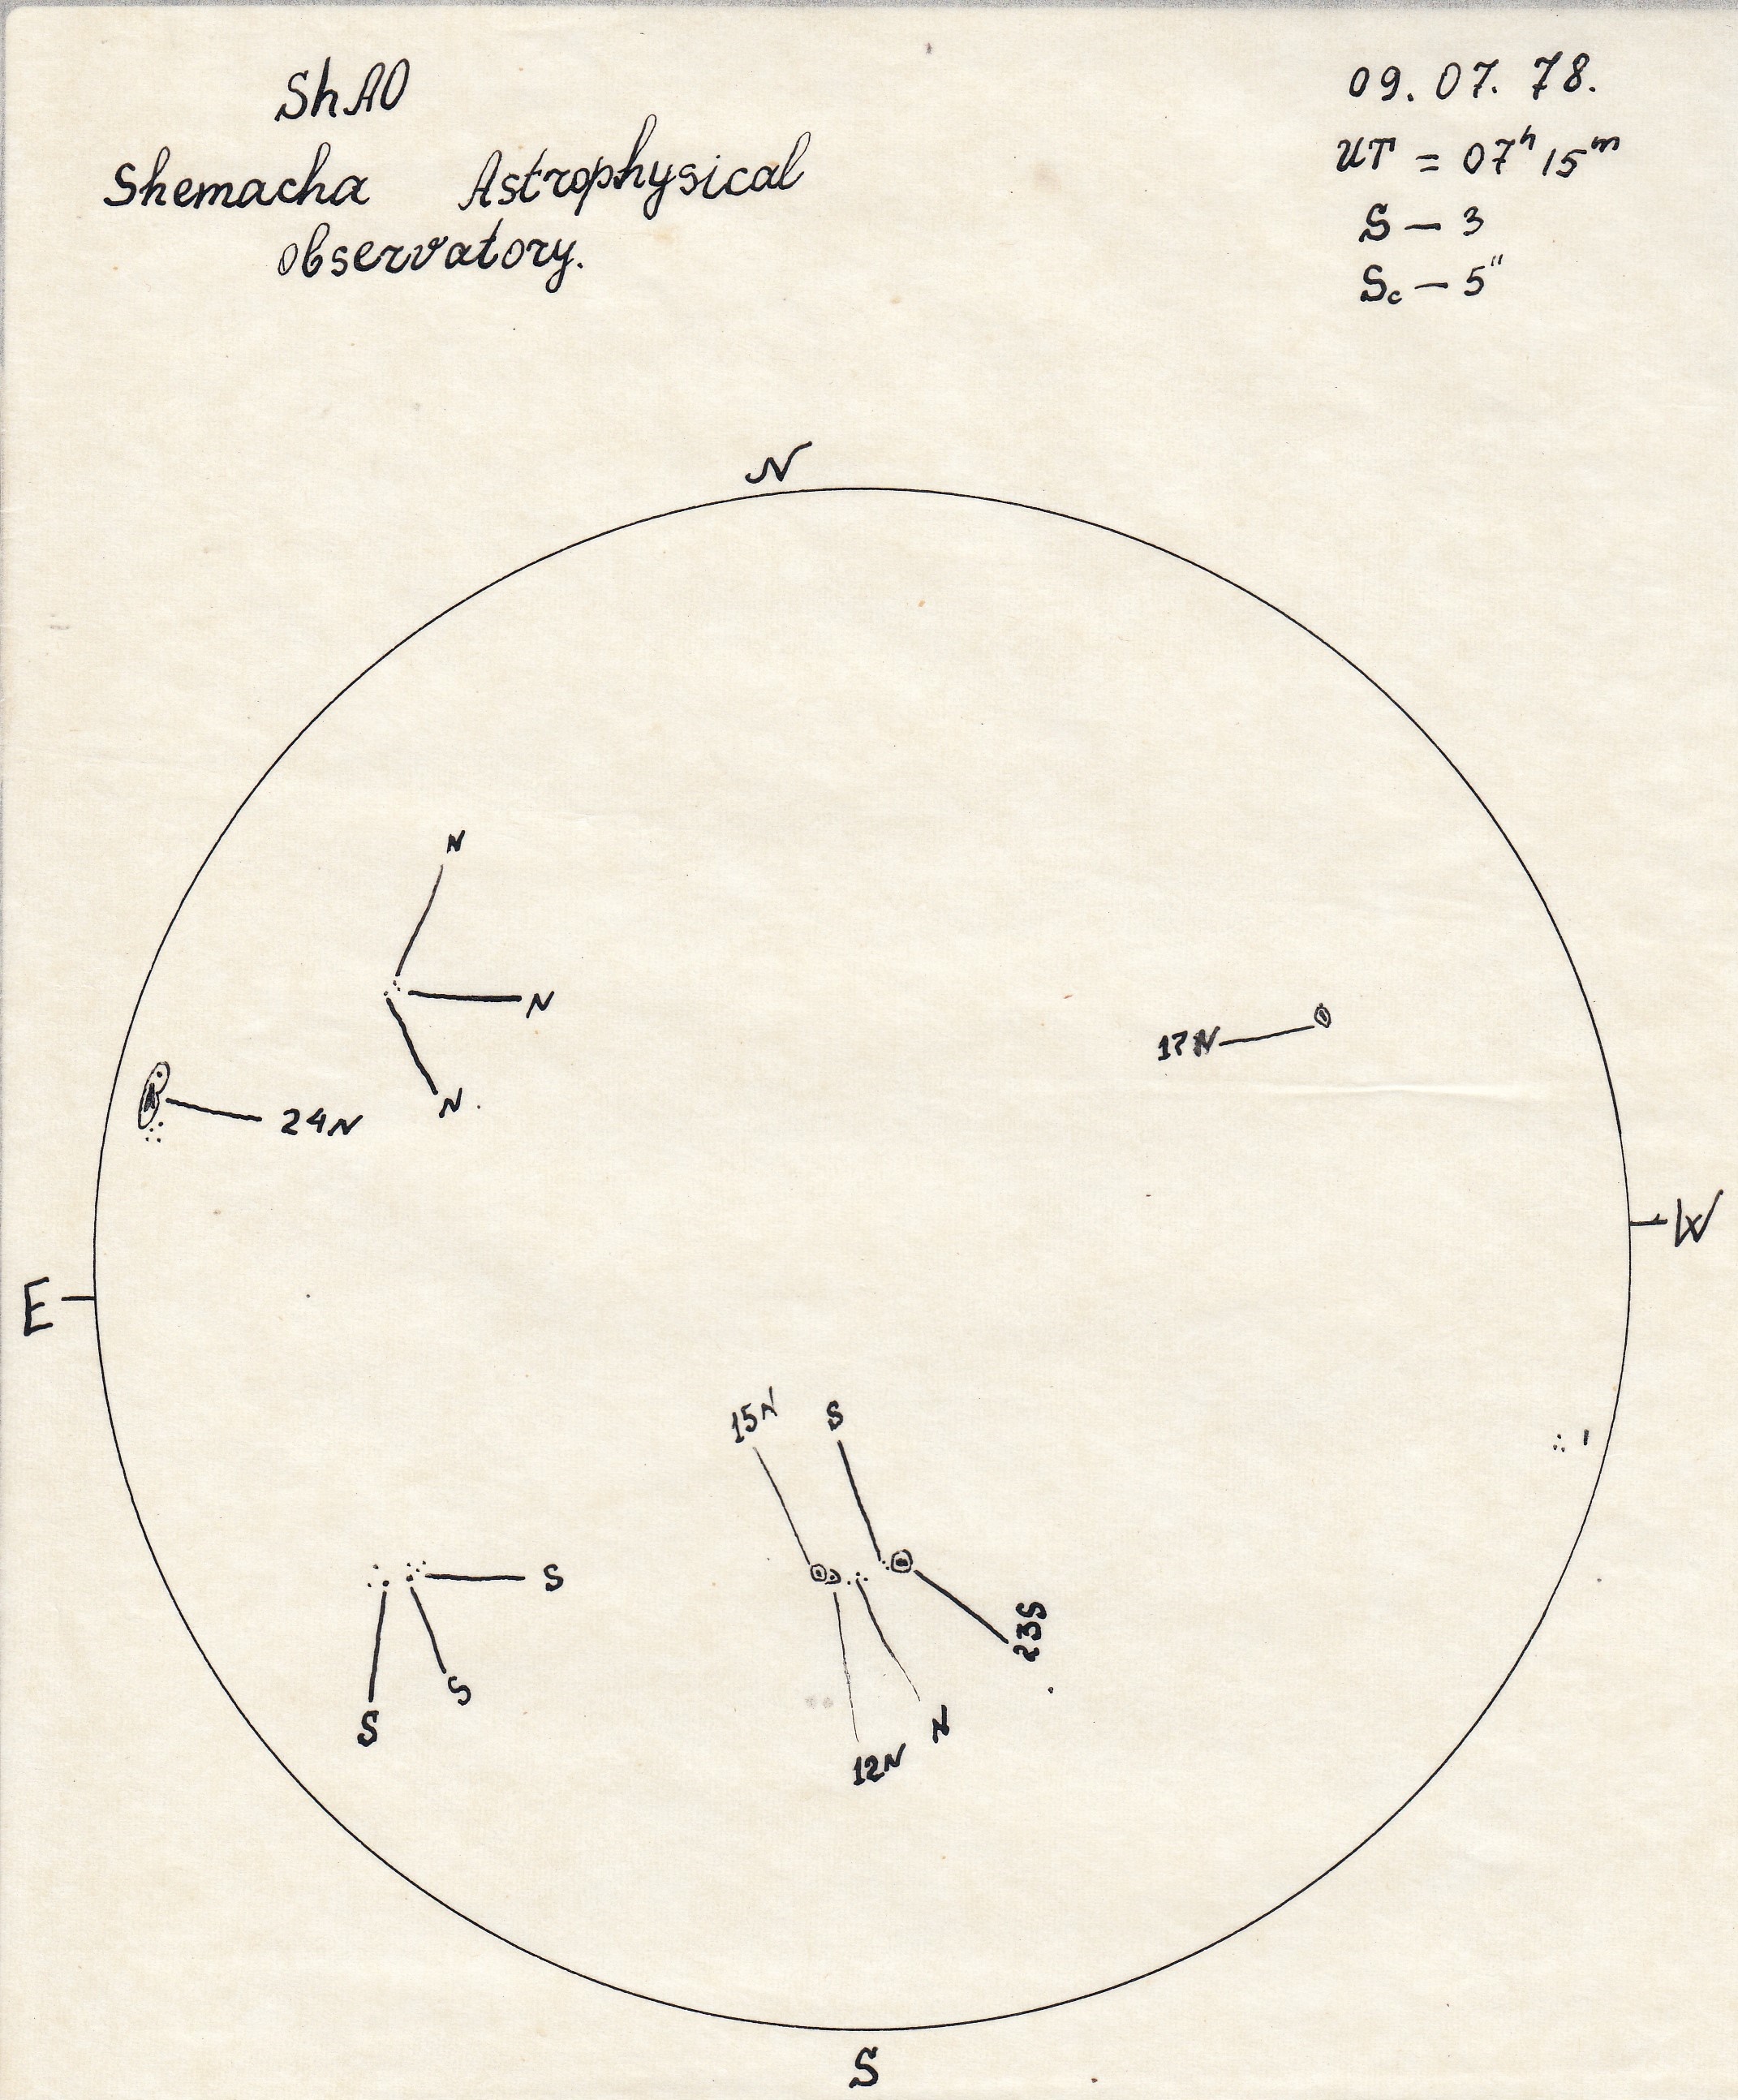 ShAO
09. 07. 78.
Shemacha Astrophysical
UT = 07h 15m
observatory.
S — 3
Sc — 5"
N
N
N
17N
N.
24N
W
E
15N
S
S
23S
S
S
N
12N
S